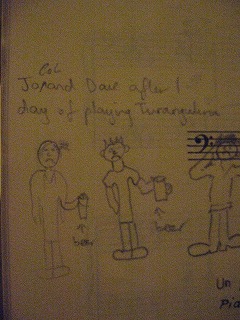 Col
Jo and Dave after 1
day of playing Turangalila
beer
beer
Un
Pia